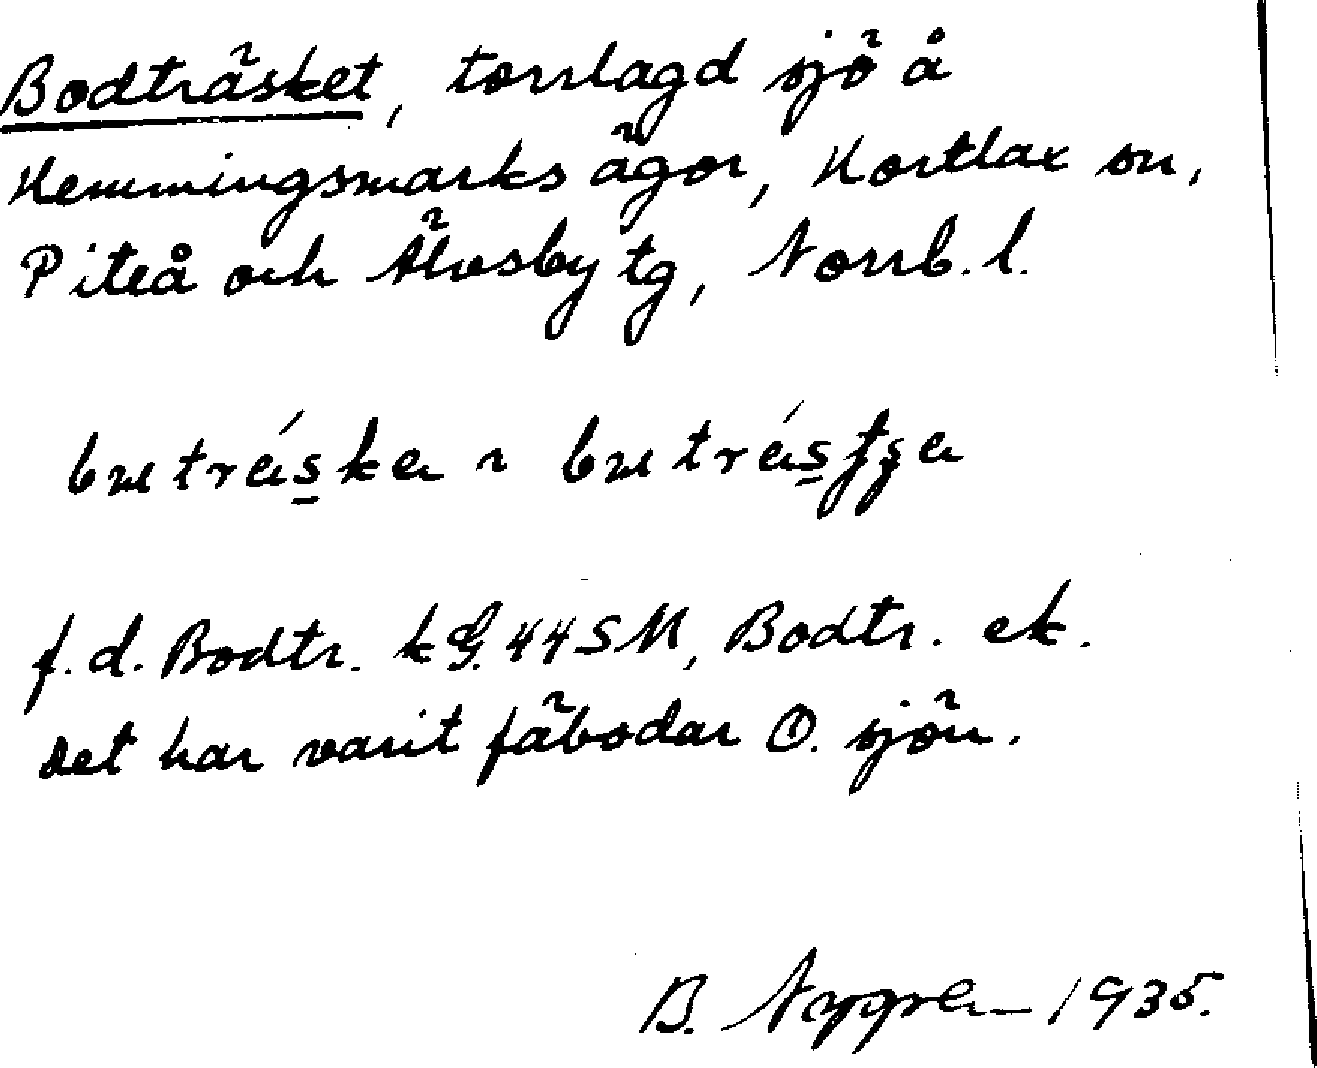 Bodträsket, torrlagd sjö å
Hemmingsmarks ägor, Hortlax sn,
Piteå och Älvsby tg, Norrb. l.
f.d. Bodtr. kG. 44 SM, Bodtr. ek.
Det har varit fäbodar O. sjön.
B. Nygren 1935.